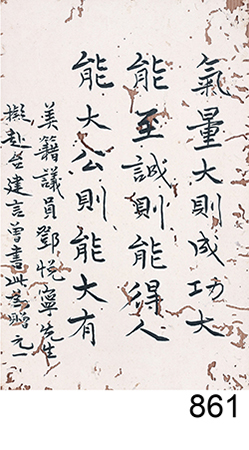 氣量大則成功大
能至誠則能得人
能大公則能大有
美籍議員鄧悅寧先生
擬赴台建言曾書此以贈 元一
861